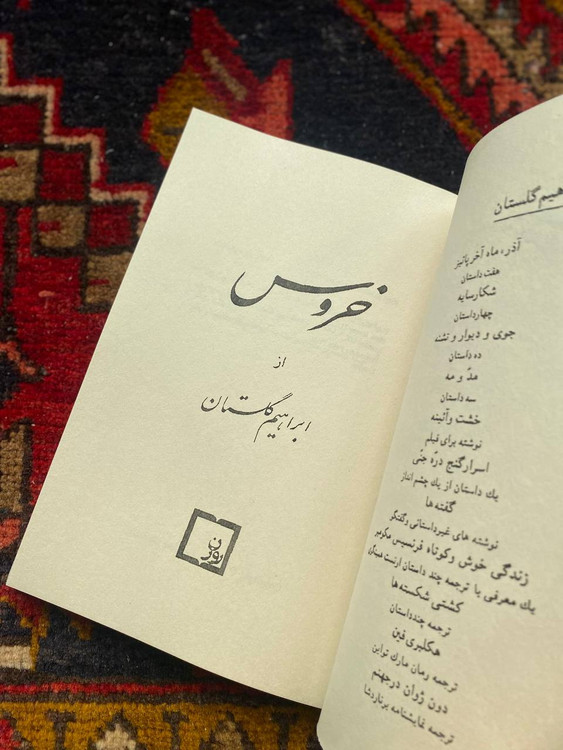 هیم گلستان
آذر، ماه آخر پائیز
هفت داستان
شکار سایه
چهار داستان
جوی و دیوار و تشنه
ده داستان
مدّ و مه
سه داستان
خشت و آئینه
نوشته برای فیلم
اسرار گنج درّه جنّی
یك داستان از یك چشم انداز
گفته‌ها
نوشته های غیرداستانی وگفتگو
زندگی خوش وکوتاه فرنسیس مکومبر
یك معرفی با ترجمه چند داستان ارنست همینگوی
کشتی شکسته‌ها
ترجمه چند داستان
هکلبری فین
ترجمه رمان مارك تواین
دون ژوان درجهنم
ترجمه نمایشنامه برنارد شا
خروس
از
ابراهیم گلستان
روزن